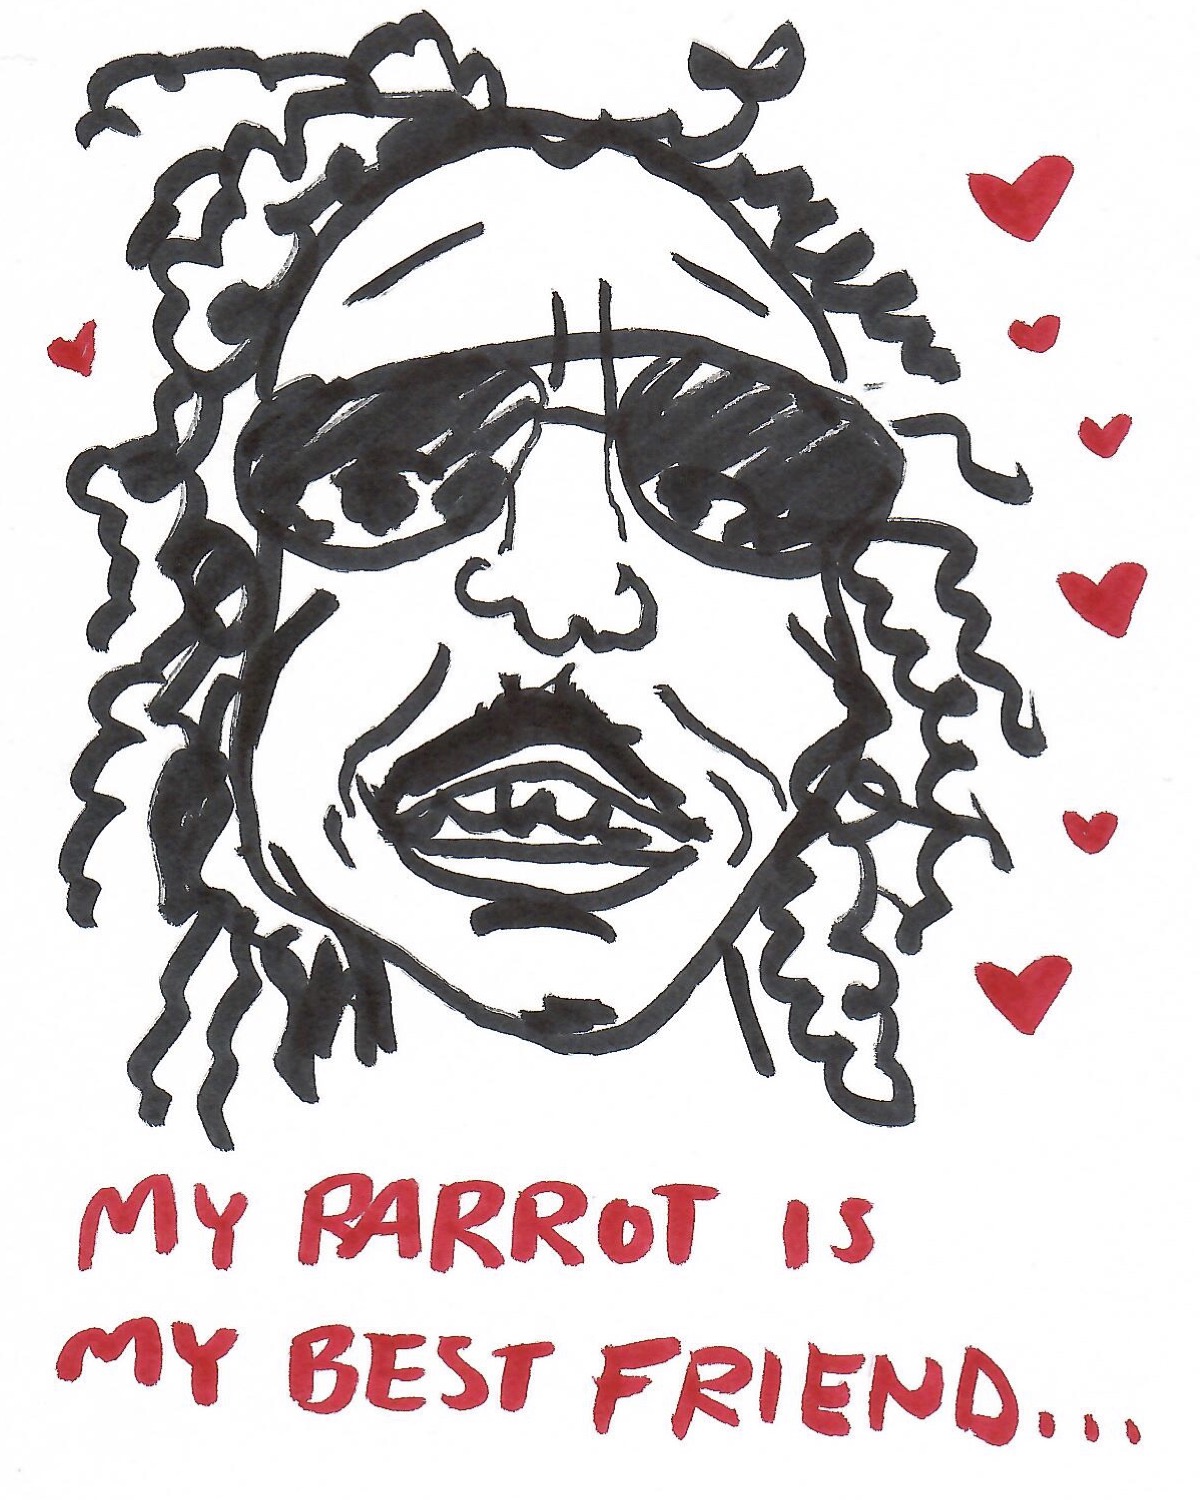 MY PARROT IS
MY BEST FRIEND...